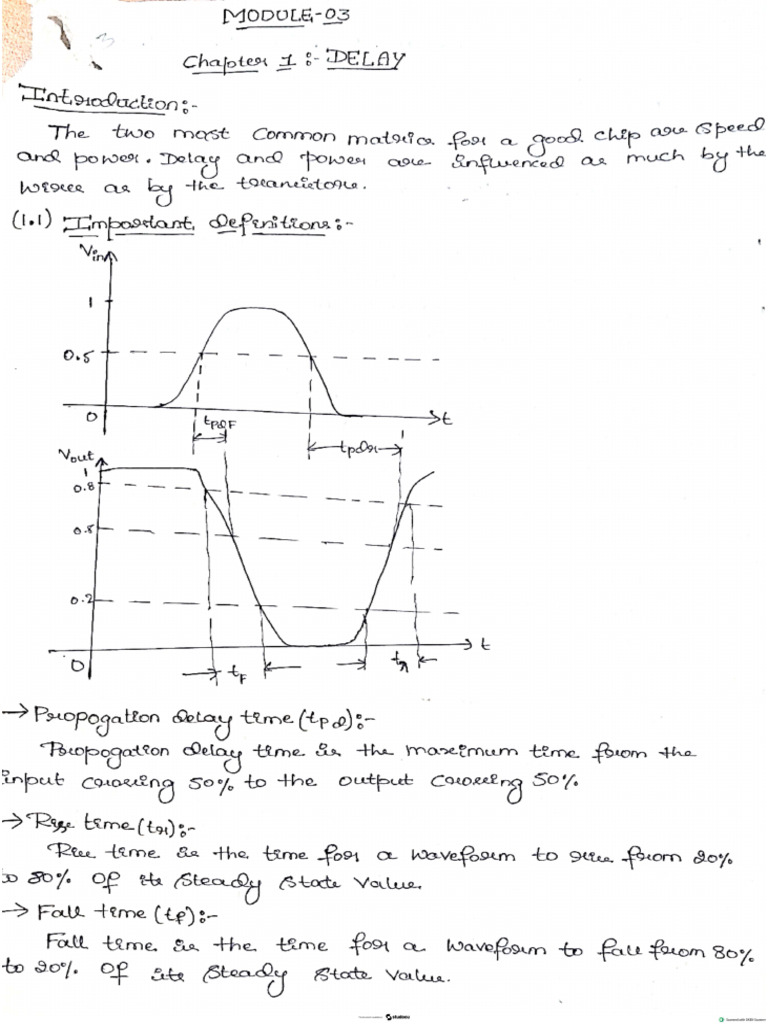 MODULE-03
Chapter 1 :- DELAY
Introduction:-
The two most common metrics for a good chip are speed
and power. Delay and power are influenced as much by the
wires as by the transistors.
(1.1) Important definitions:-
Vin
1
0.5
0
t
tpdF
tpdr
Vout
1
0.8
0.5
0.2
0
t
tF
tr
→ Propogation delay time (tpd):-
Propogation delay time is the maximum time from the
input crossing 50% to the output crossing 50%
→ Rise time (tr):-
Rise time is the time for a waveform to rise from 20%
to 80% Of its Steady State Value.
→ Fall time (tf):-
Fall time is the time for a waveform to fall from 80%
to 20% Of its Steady State Value.
studocu